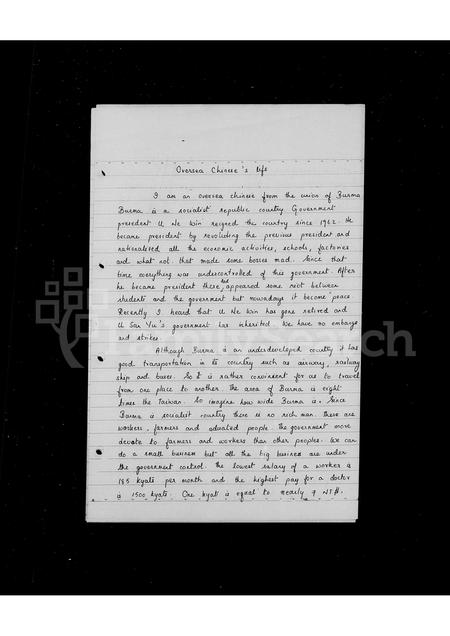 Oversea Chinese's life
I am an oversea chinese from the union of Burma
Burma is a socialist republic country. Government
president U Ne Win reigned the country since 1962. He
became president by revoluting the previous president and
nationalised all the economic activities, schools, factories
and what not. that made some bosses mad. Since that
time everything was undercontrolled of this government. After
he became president there had appeared some riot between
students and the government but nowadays it become peace
Recently I heard that U Ne Win has gone retired and
U San Yu's government has inherited. We have no embargo
and strikes.
Although Burma is an underdeveloped country it has
good transportation in its country such as airway, railway
ship and buses. So it is rather convinient for us to travel
from one place to another. the area of Burma is eight
times the Taiwan. So imagine how wide Burma is. Since
Burma is socialist country there is no rich man. there are
workers, farmers and educated people. the government more
devote to farmers and workers than other peoples. We can
do a small business but all the big business are under
the government control. The lowest salary of a worker is
185 kyats per month and the highest pay for a doctor
is 1500 kyats. One kyat is equal to nearly 7 NT$.